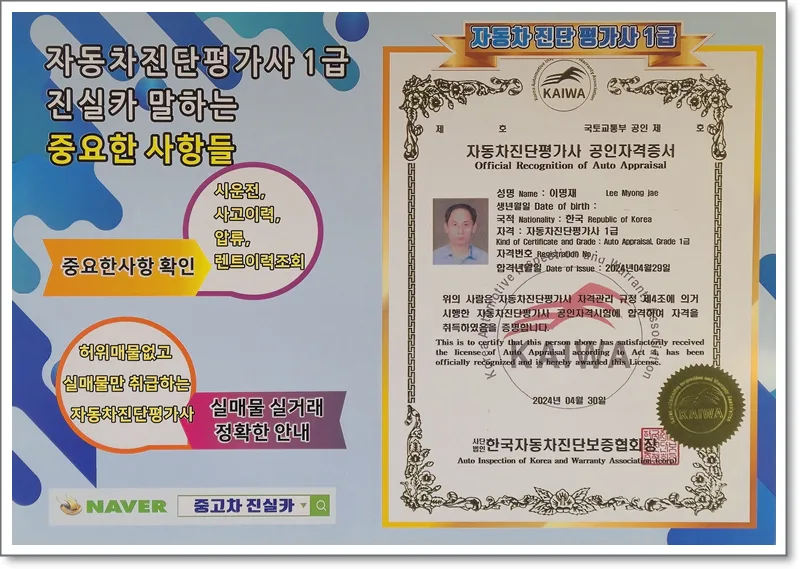 자동차진단평가사 1급
진실카 말하는
중요한 사항들
시운전,
사고이력,
압류,
렌트이력조회
중요한사항 확인
허위매물없고
실매물만 취급하는
자동차진단평가사
실매물 실거래
정확한 안내
NAVER 중고차 진실카
자동차 진단 평가사 1급
Korea Automotive Inspection and Warranty Association
KAIWA
제 호 국토교통부 공인 제 호
자동차진단평가사 공인자격증서
Official Recognition of Auto Appraisal
성명 Name : 이명재 Lee Myong jae
생년월일 Date of birth :
국적 Nationality : 한국 Republic of Korea
자격 : 자동차진단평가사 1급
Kind of Certificate and Grade : Auto Appraisal, Grade 1급
자격번호 Registration No
합격년월일 Date of Issue : 2024년04월29일
위의 사람은 자동차진단평가사 자격관리 규정 제4조에 의거
시행한 자동차진단평가사 공인자격시험에 합격하여 자격을
취득하였음을 증명합니다.
This is to certify that this person above has satisfactorily received
the license of Auto Appraisal according Act 4. has been
officially recognized and is hereby awarded this License.
Korea Automotive Inspection and Warranty Association
KAIWA
2024년 04월 30일
KAIWA
사단법인 한국자동차진단보증협회장
Auto Inspection of Korea and Warranty Association